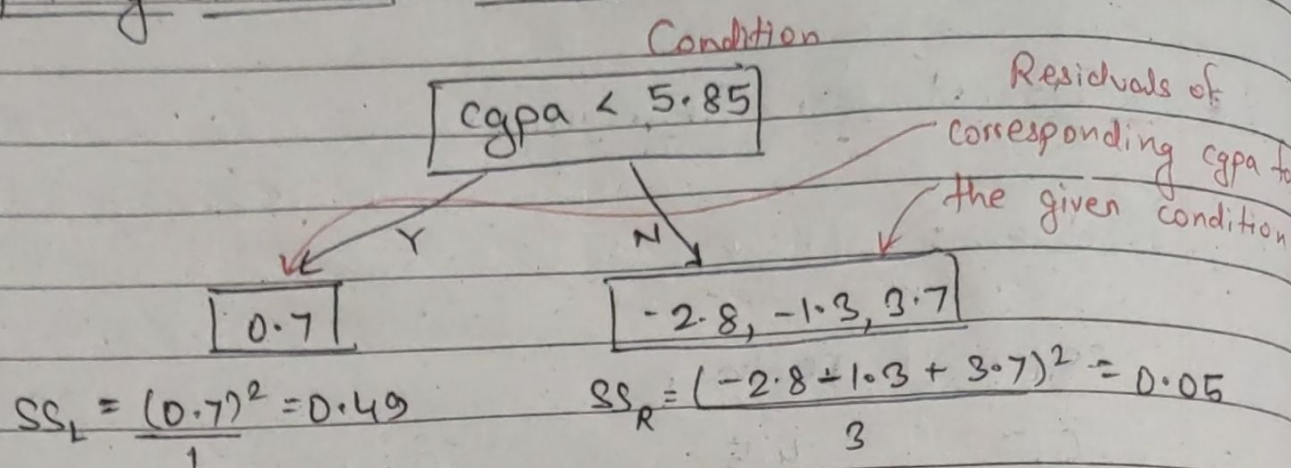 Condition
cgpa < 5.85
Residuals of
corresponding cgpa to
the given condition
Y
N
0.7
-2.8, -1.3, 3.7
SS_L = (0.7)² / 1 = 0.49
SS_R = (-2.8 - 1.3 + 3.7)² / 3 = 0.05